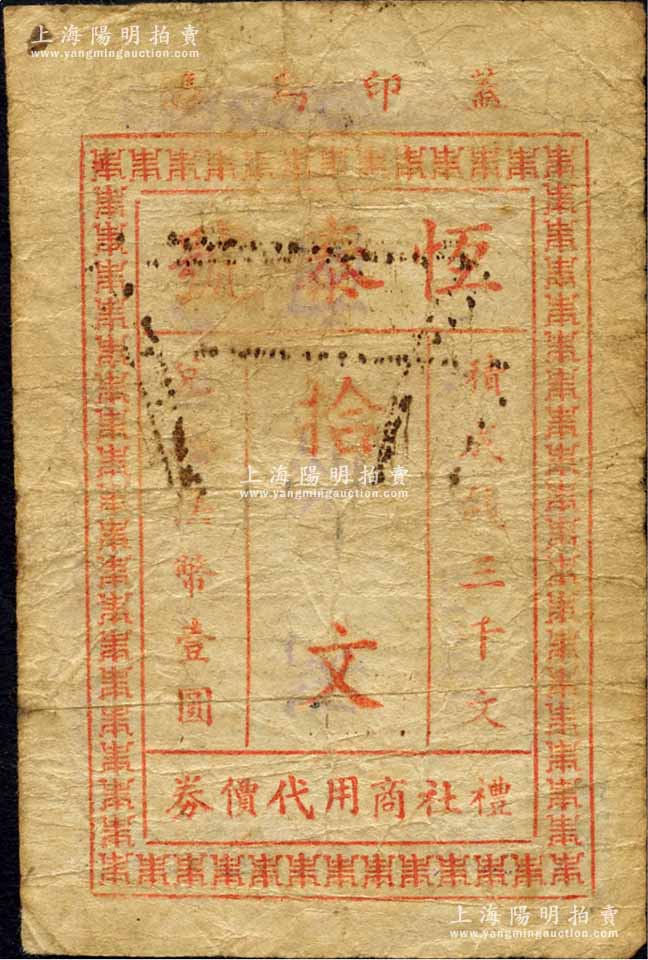 上海陽明拍賣
www.yangmingauction.com
蓋印為憑
恆泰號
積成銅三千文
拾文
兌換法幣壹圓
禮社商用代價券
上海陽明拍賣
www.yangmingauction.com
上海陽明拍賣
www.yangmingauction.com